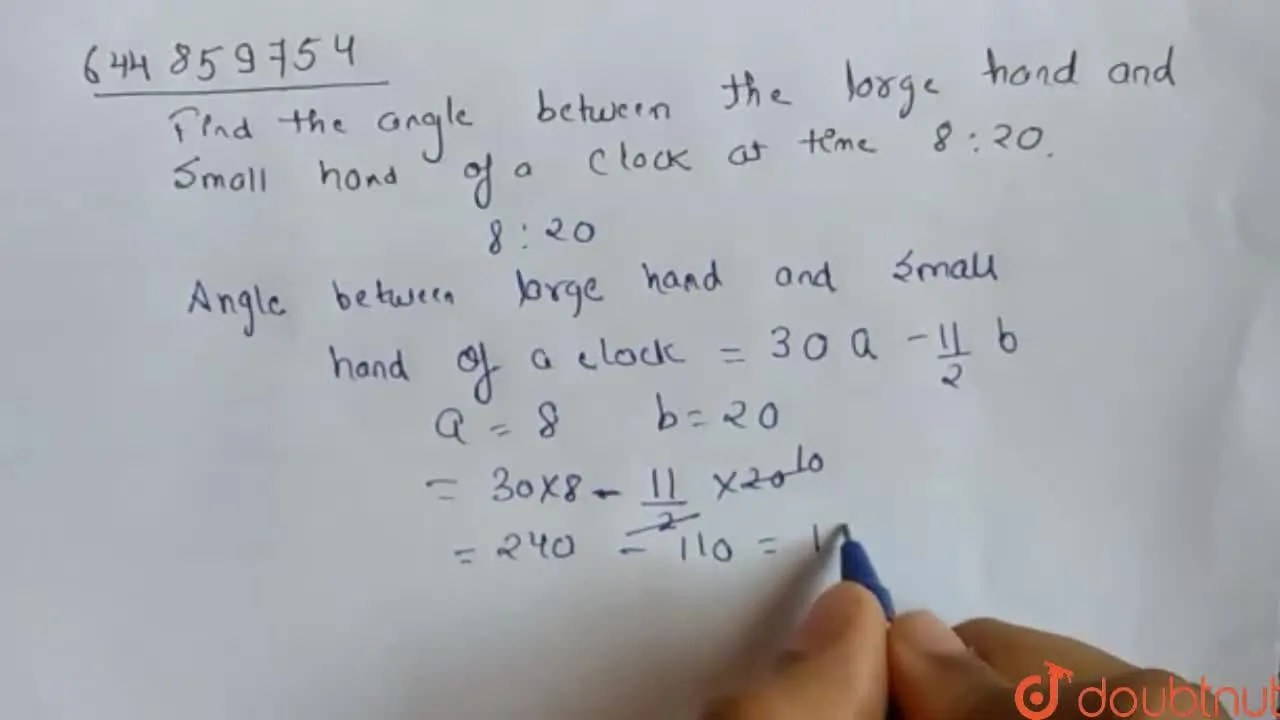 644 859754
Find the angle between the large hand and
Small hand of a clock at time 8:20.
8:20
Angle between large hand and small
hand of a clock = 30 a - 11/2 b
a = 8 b = 20
= 30×8 - 11/2 ×20 10
= 240 - 110 = 1
doubtnut